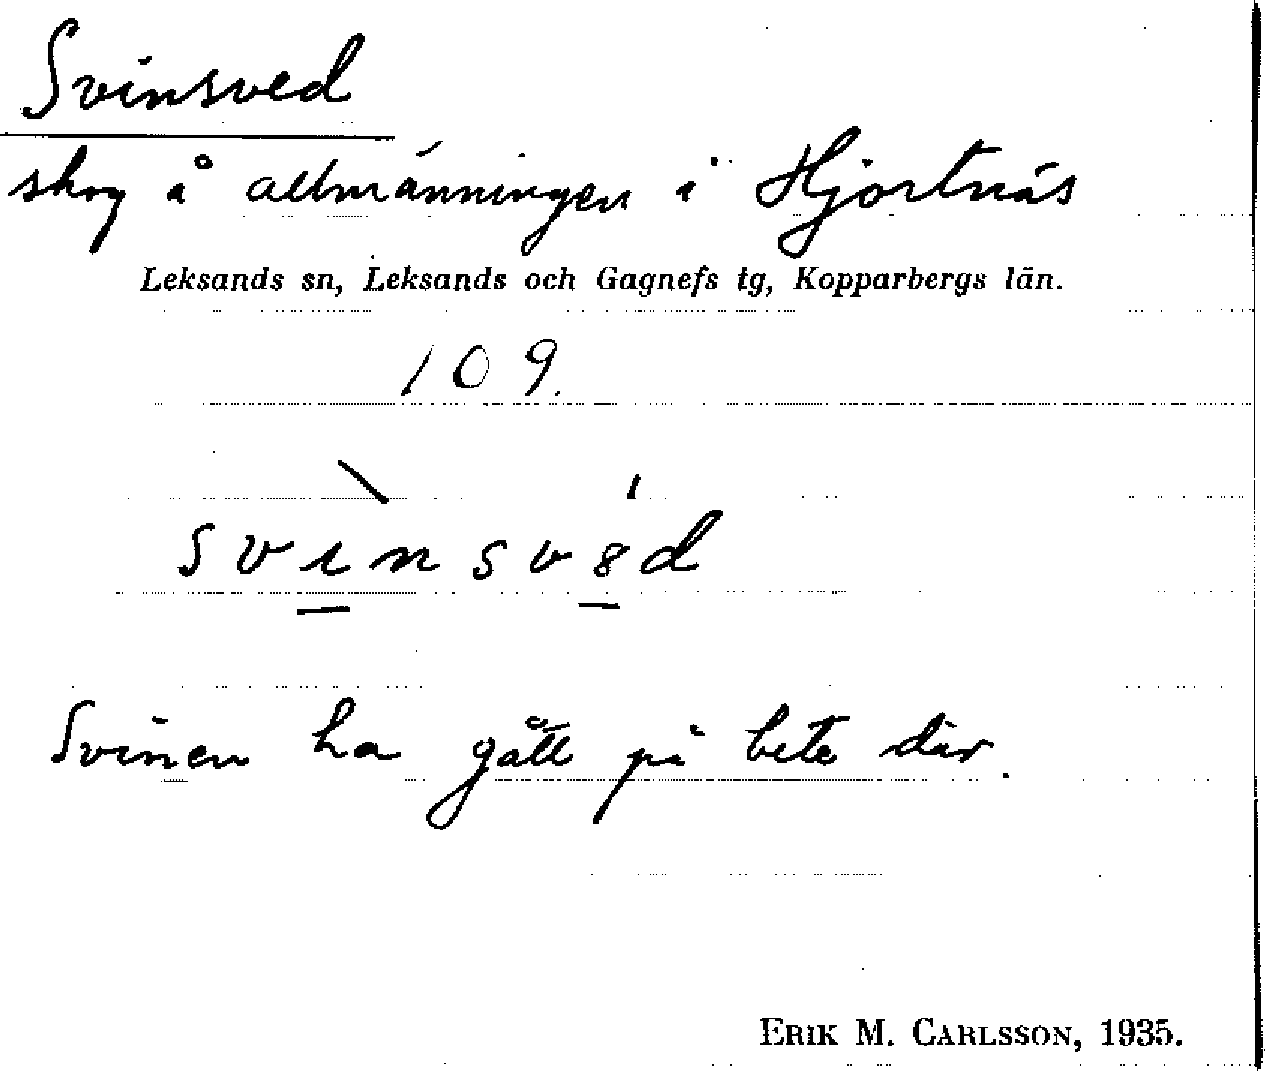 Svinsved
skog å allmänningen i Hjortnäs
Leksands sn, Leksands och Gagnefs tg, Kopparbergs län.
109.
svinsved
Svinen ha gått på bete där.
ERIK M. CARLSSON, 1935.